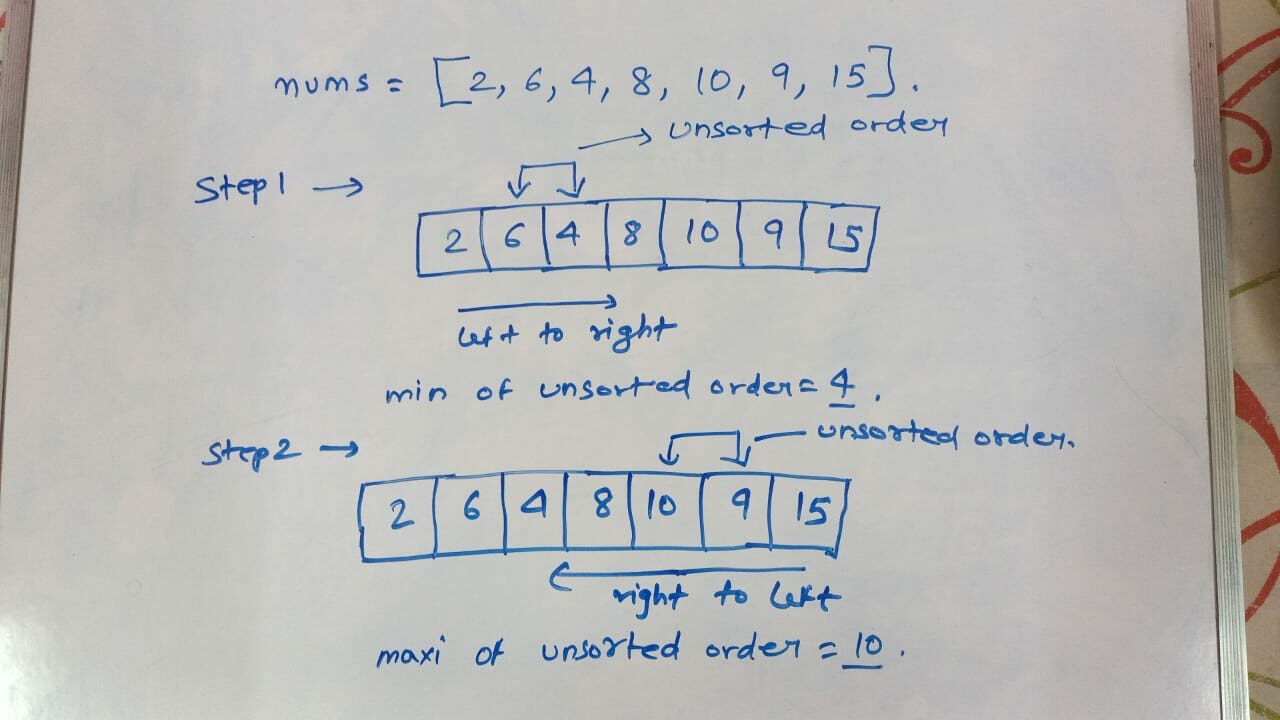 nums = [2, 6, 4, 8, 10, 9, 15].
→ unsorted order
Step1 →
2 6 4 8 10 9 15
left to right
min of unsorted order = 4.
Step2 →
unsorted order.
2 6 4 8 10 9 15
right to left
maxi of unsorted order = 10.